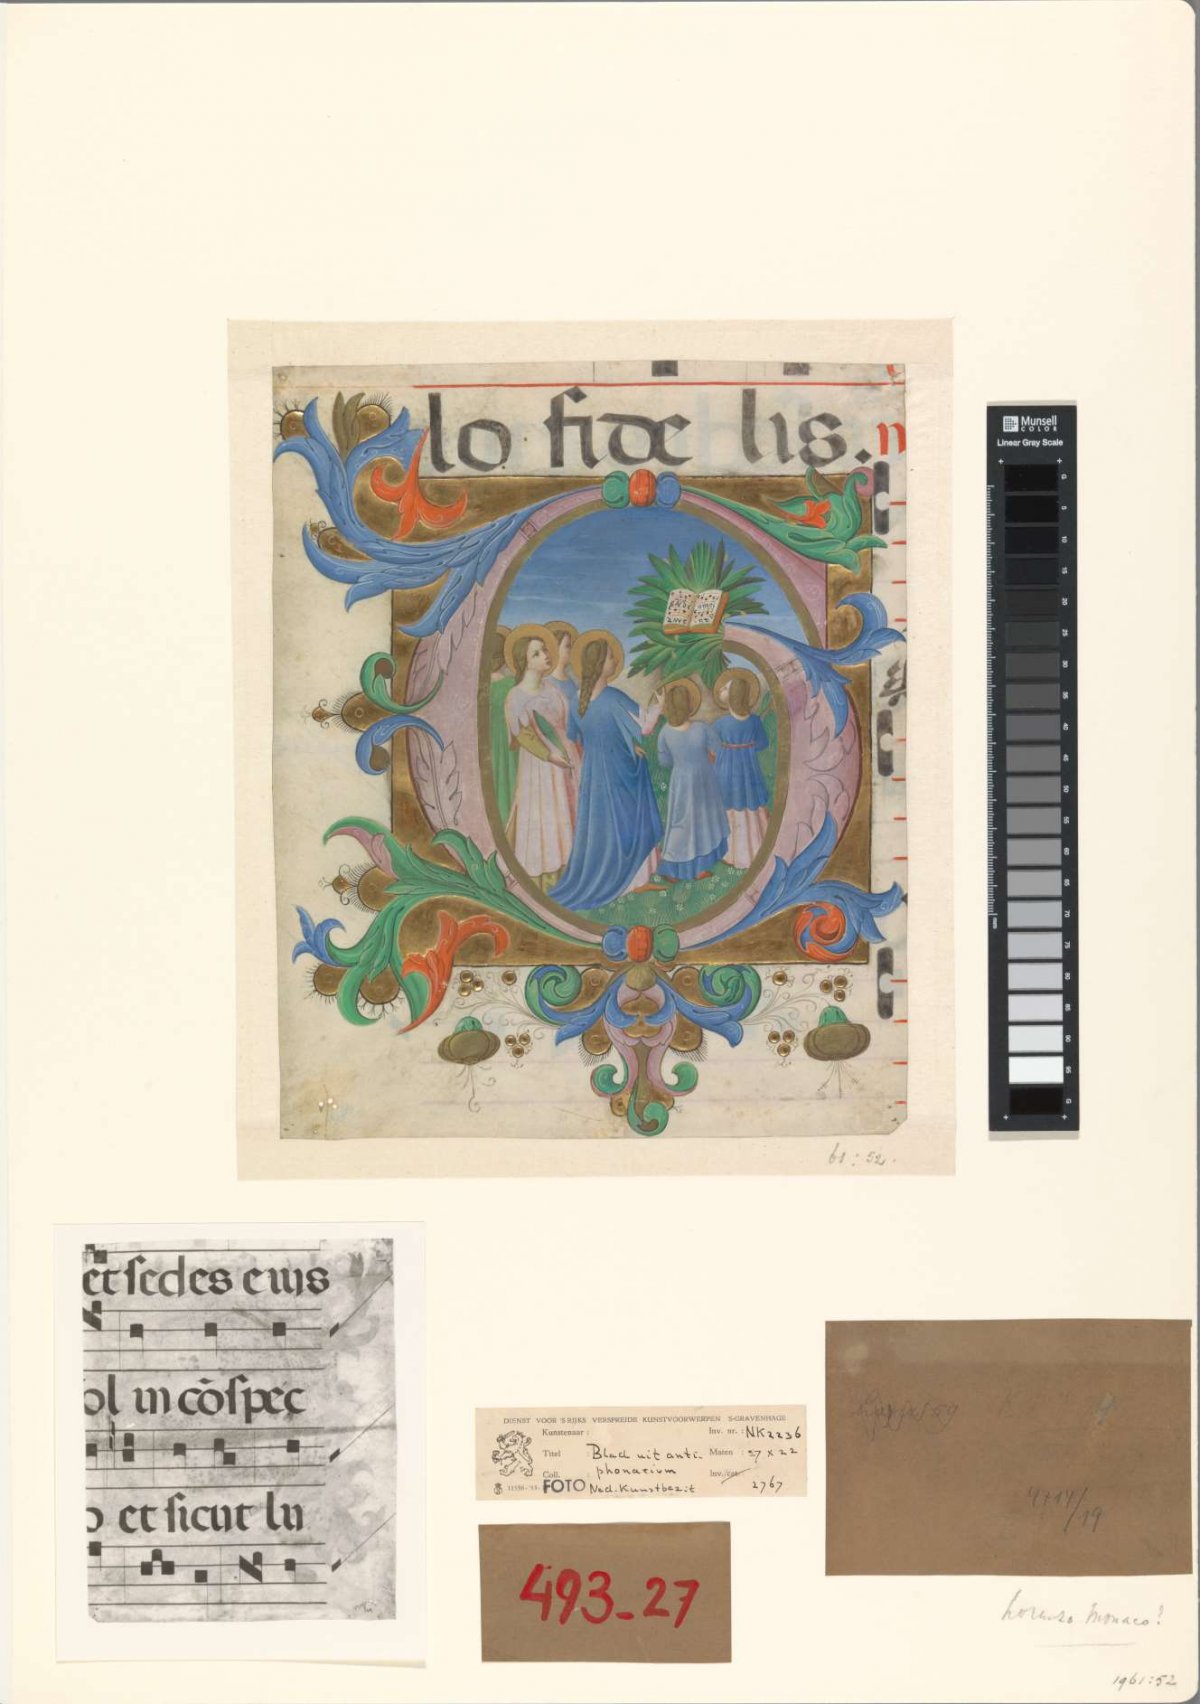 lo fide lis. n
Munsell
COLOR
Linear Gray Scale
61:52.
et sedes eius
ol in cōspec
o et sicut lu
DIENST VOOR 'S RIJKS VERSPREIDE KUNSTVOORWERPEN 'S-GRAVENHAGE
Kunstenaar :
Inv. nr. : NK2236
Titel Blad uit anti-
Maten : 27 x 22
Coll. phonarium
Inv./cat.
FOTO Ned. Kunstbezit
2767
493-27
4714/19
Lorenzo Monaco?
1961:52